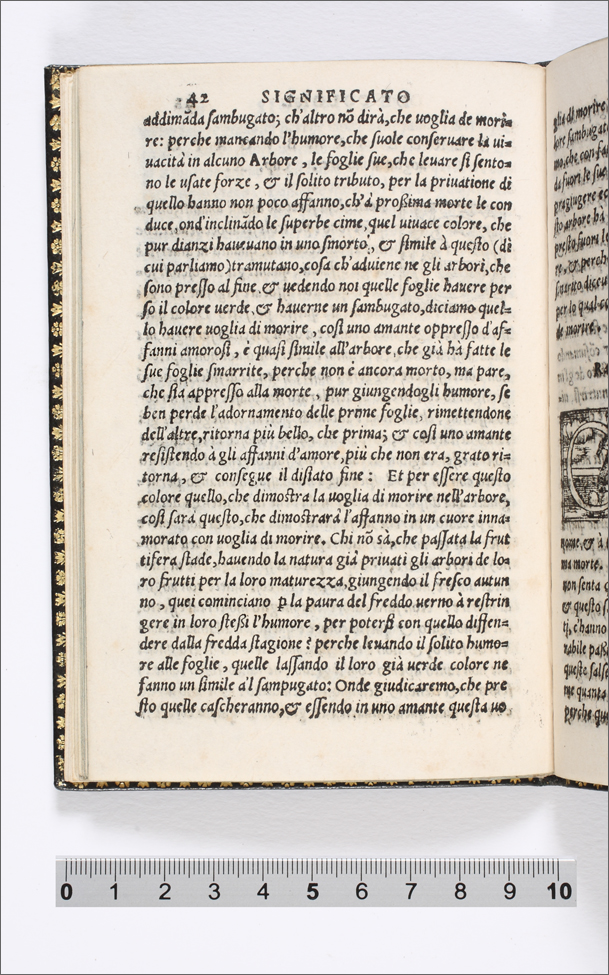 42 SIGNIFICATO
addimãda sambugato; ch'altro nõ dirà, che uoglia de mori-
re: perche mancando l'humore, che suole conseruare la ui-
uacità in alcuno Arbore, le foglie sue, che leuare si sento-
no le usate forze, & il solito tributo, per la priuatione di
quello hanno non poco affanno, ch'à proßima morte le con
duce, ond'inclinãdo le superbe cime, quel uiuace colore, che
pur dianzi haueuano in uno smorto, & simile à questo (dì
cui parliamo) tramutano, cosa ch'aduiene ne gli arbori, che
sono presso al fine, & uedendo noi quelle foglie hauere per
so il colore uerde, & hauerne un sambugato, diciamo quel-
lo hauere uoglia di morire, così uno amante oppresso d'af-
fanni amorosi, è quasi simile all'arbore, che già hà fatte le
sue foglie smarrite, perche non è ancora morto, ma pare,
che stia appresso alla morte, pur giungendogli humore, se
ben perde l'adornamento delle prime foglie, rimettendone
dell'altre, ritorna più bello, che prima; & così uno amante
resistendo à gli affanni d'amore, più che non era, grato ri-
torna, & consegue il disiato fine: Et per essere questo
colore quello, che dimostra la uoglia di morire nell'arbore,
così sarà questo, che dimostrarà l'affanno in un cuore inna-
morato con uoglia di morire. Chi nõ sà, che passata la frut
tifera stade, hauendo la natura già priuati gli arbori de lo-
ro frutti per la loro maturezza, giungendo il fresco autun
no, quei cominciano ꝑ la paura del freddo uerno à restrin
gere in loro steßi l'humore, per poterßi con quello diffen-
dere dalla fredda stagione? perche leuando il solito humo-
re alle foglie, quelle lassando il loro già uerde colore ne
fanno un simile a'l sampugato: Onde giudicaremo, che pre
sto quelle cascheranno, & essendo in uno amante questa uo
glia di morire
nome, & à
ma morte.
non senta
& questo
ti, c'hanno
me quanto
perche que
0 1 2 3 4 5 6 7 8 9 10